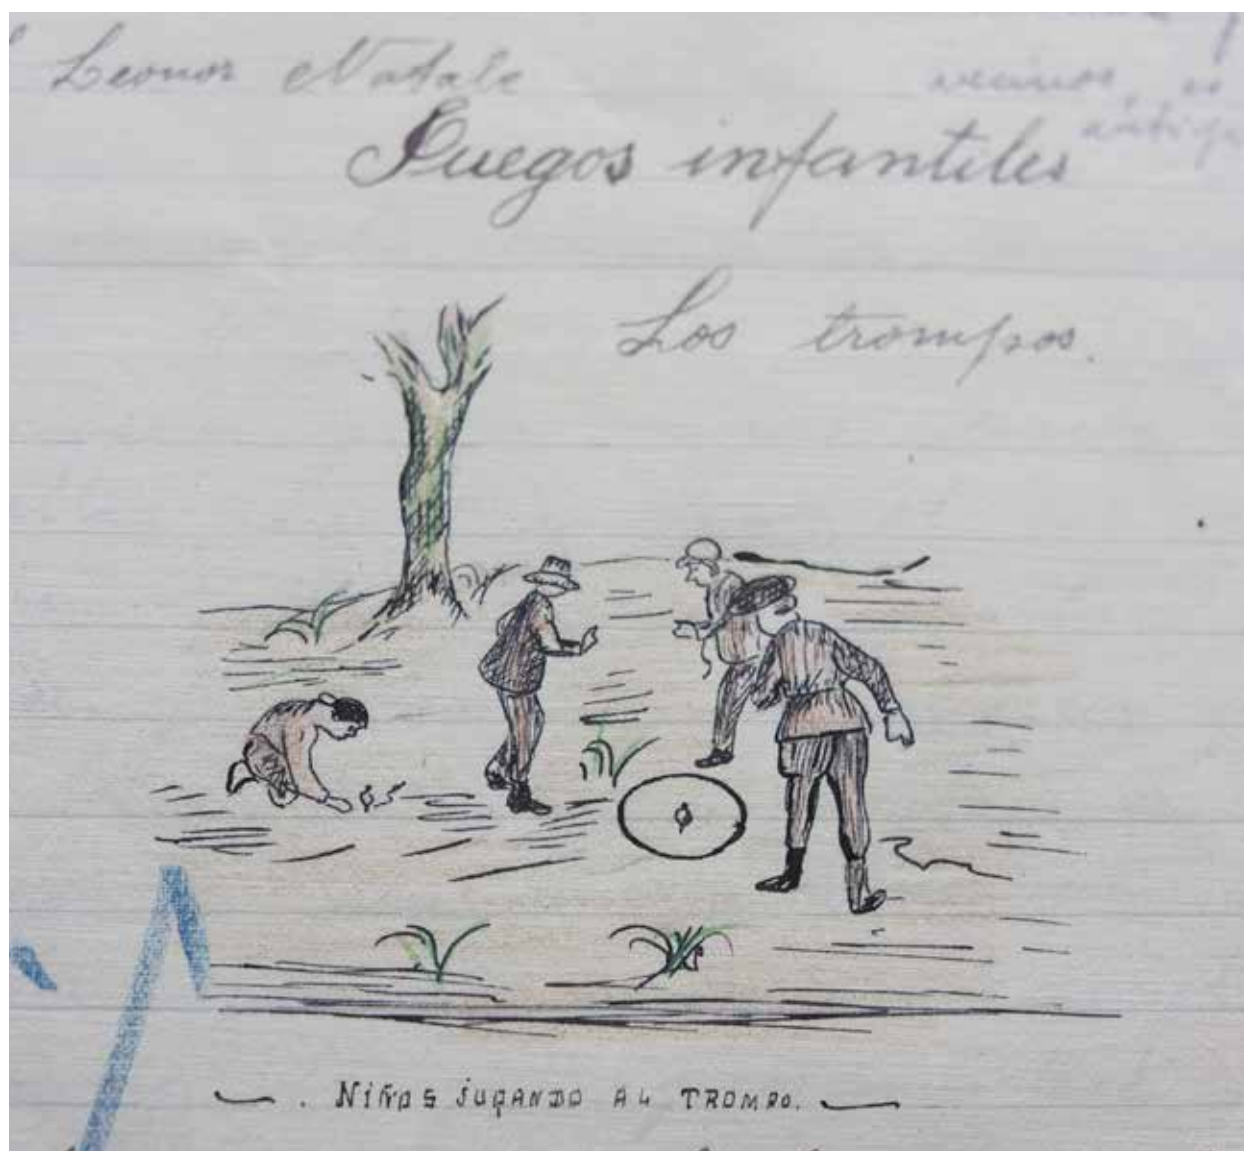 Leonor Natale
vecinos, es
Juegos infantiles
Los trompos.
. Niños jugando al trompo.